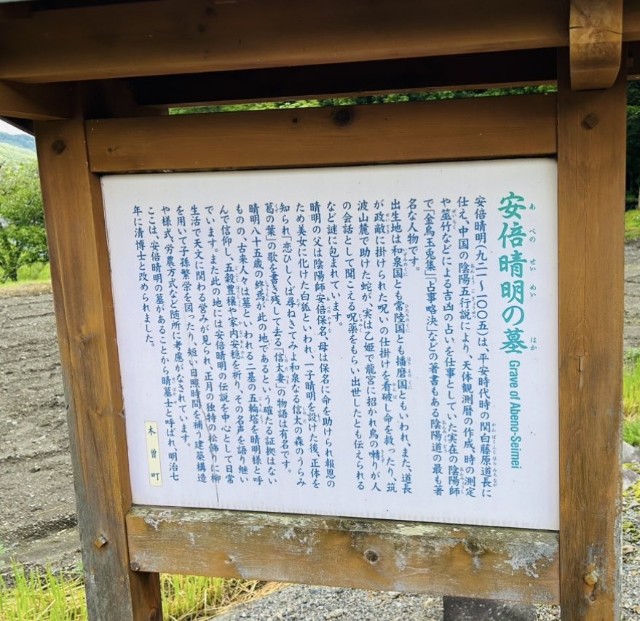 安倍晴明の墓 Grave of Abeno-Seimei
あべのせいめい はか
安倍晴明(九二一～一〇〇五)は、平安時代時の関白藤原道長に
仕え、中国の陰陽五行説により、天体観測暦の作成、時の測定
や筮竹などによる吉凶の占いを仕事としていた実在の陰陽師
で「金烏玉兎集」「占事略決」などの著書もある陰陽道の最も著
名な人物です。
出生地は和泉国とも常陸国とも播磨国ともいわれ、また、道長
が政敵に掛けられた呪いの仕掛けを看破し命を救ったり、筑
波山麓で助けた蛇が、実は乙姫で龍宮に招かれ鳥の囀りが人
の会話として聞こえる呪薬をもらい出世したとも伝えられる
など謎に包まれています。
晴明の父は陰陽師安倍保名、母は保名に命を助けられ報恩の
ため美女に化けた白狐といわれ、一子晴明を設けた後、正体を
知られ「恋ひしくば尋ねきてみよ和泉なる信太の森のうらみ
葛の葉」の歌を書き残して去る「信太妻」の物語は有名です。
晴明八十五歳の終焉が此の地であるという確たる証拠はない
ものの、古来人々は墓といわれる二基の五輪塔を晴明様と呼
んで信仰し、五穀豊穣や家内安穏を祈り、その名声を語り継い
でいます。また此の地には安倍晴明の伝説を中心として日常
生活で天文に関わる営みが見られ、正月の独特の松飾りに柳
を用いて子孫繁栄を図ったり、短い日照時間を補う建築構造
や様式、労農方式など随所に考慮がなされています。
ここは、安倍晴明の墓があることから晴墓士と呼ばれ、明治七
年に清博士と改められました。
木曽町